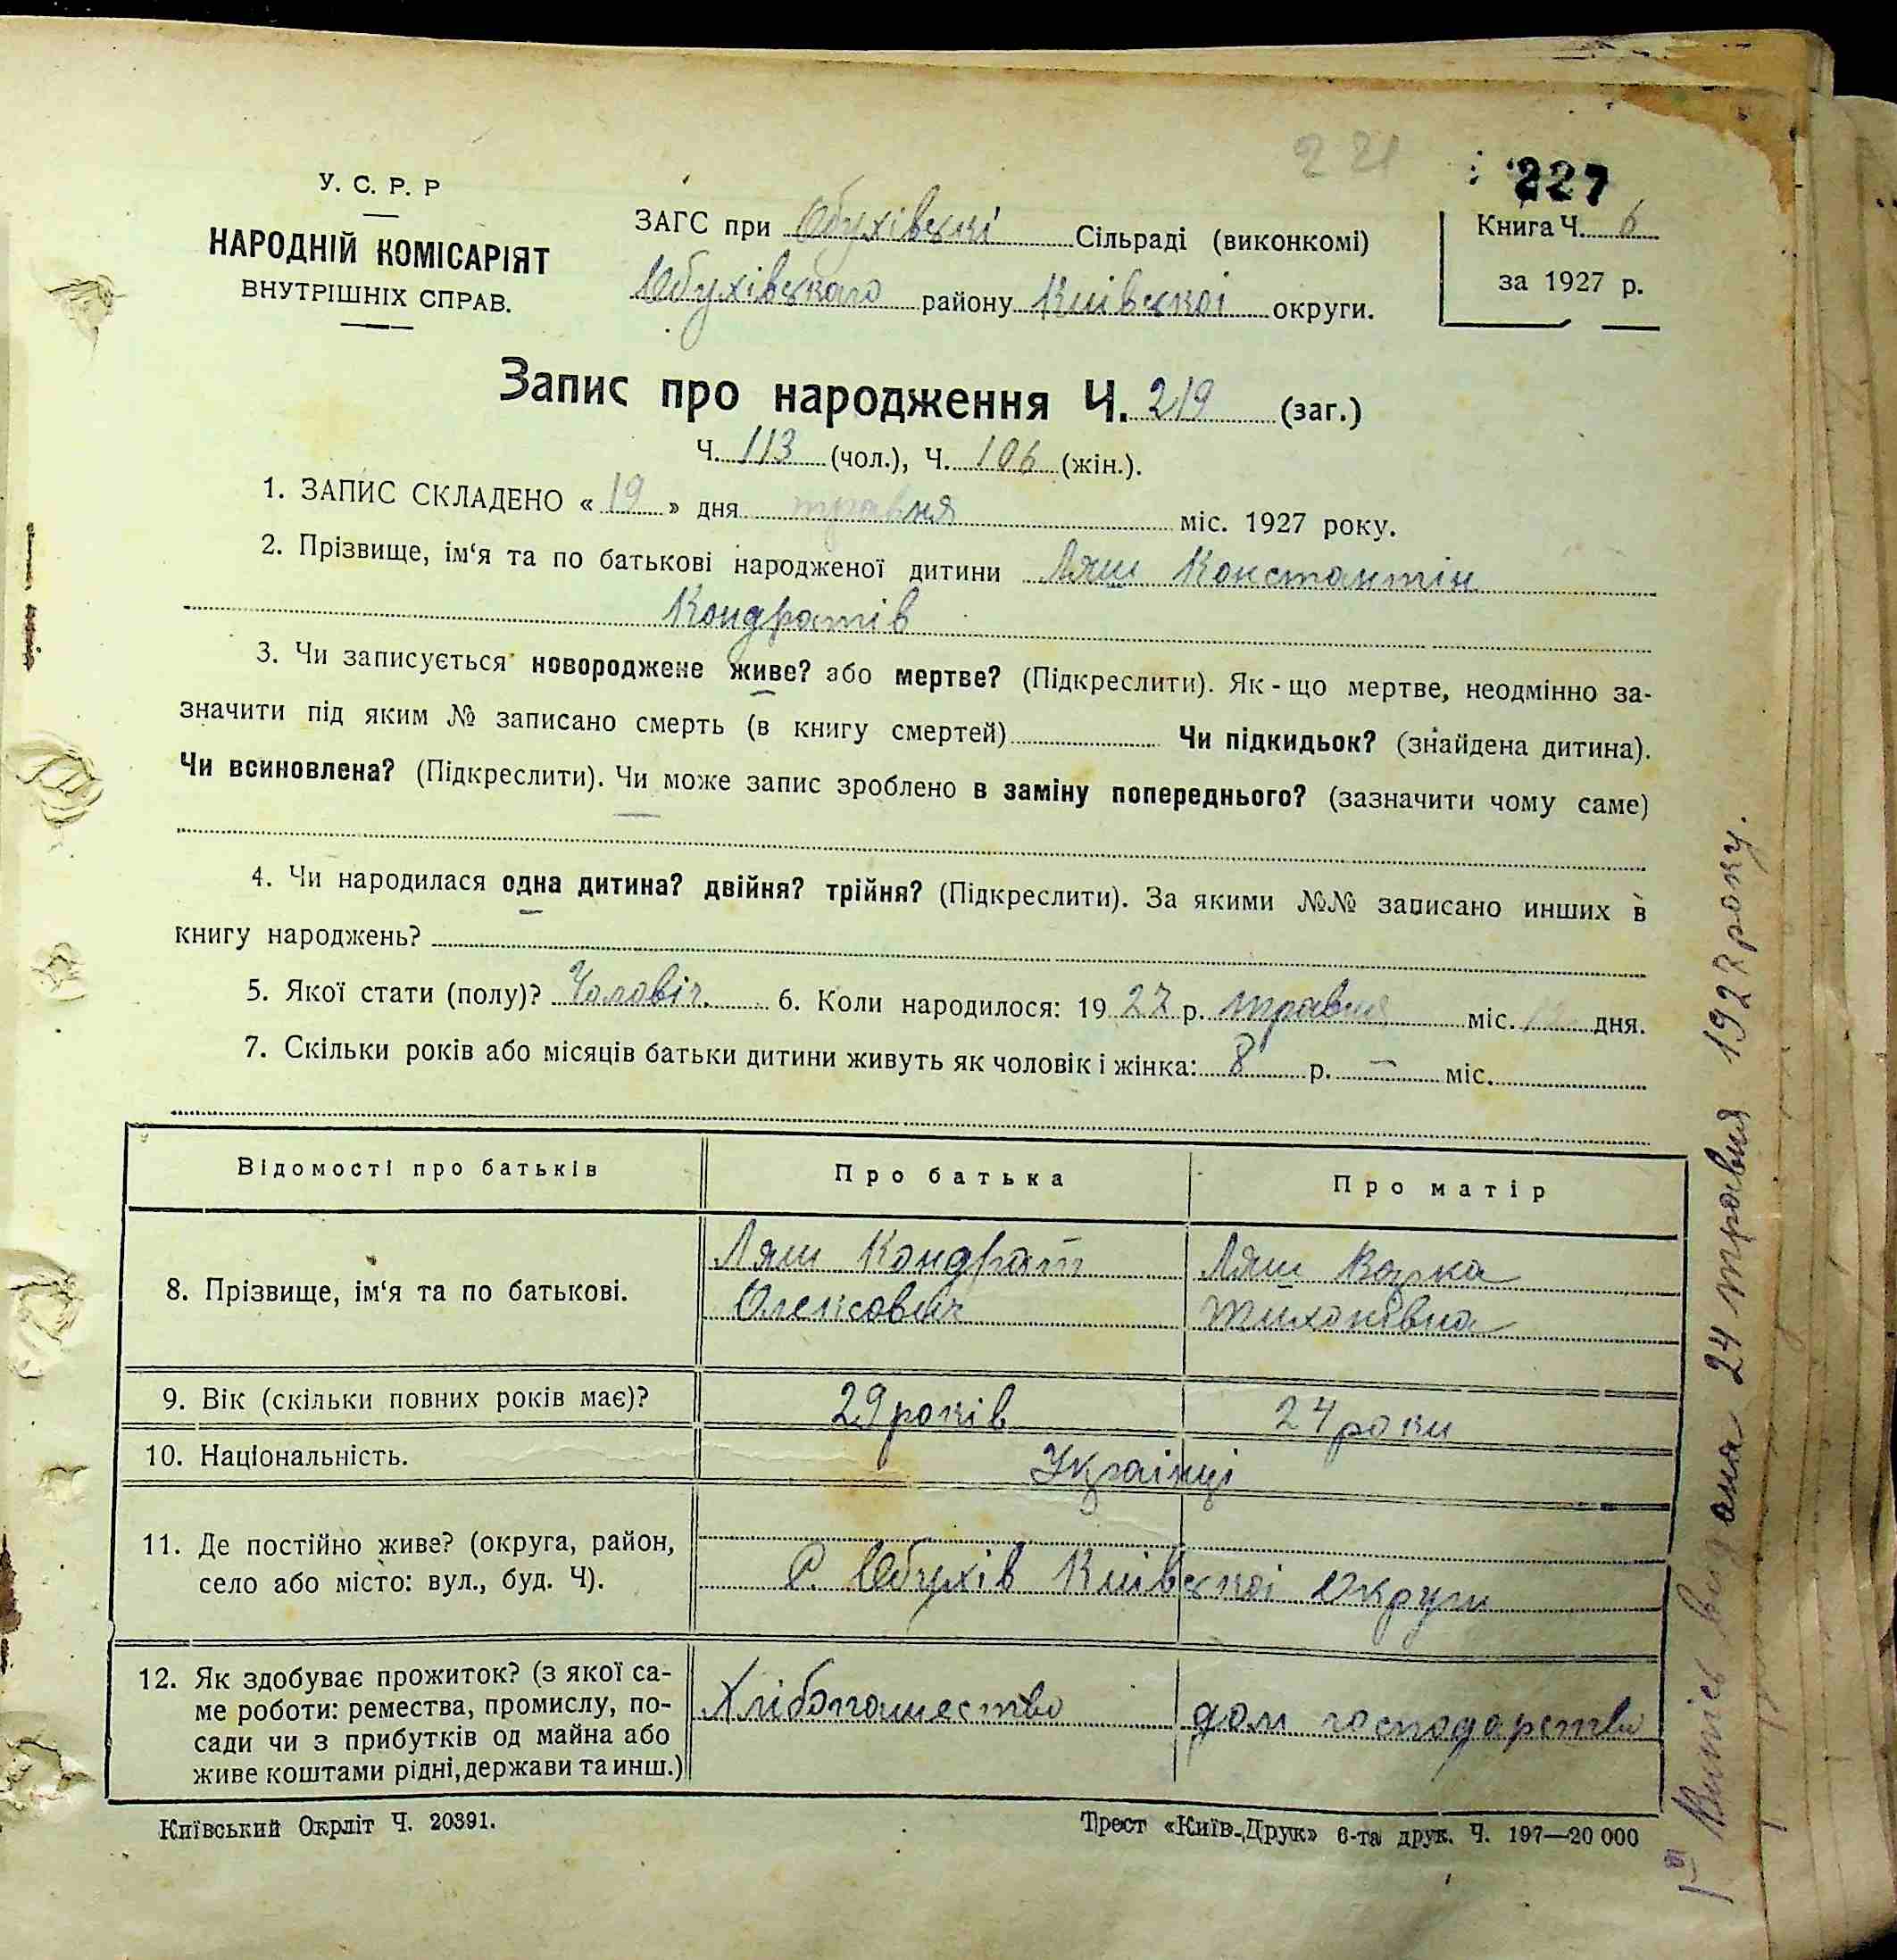 221
227
У. С. Р. Р
НАРОДНІЙ КОМІСАРІЯТ
ВНУТРІШНІХ СПРАВ.
ЗАГС при Обухівскі Сільраді (виконкомі)
Обухівского району Киівскоі округи.
Книга Ч. 6
за 1927 р.
Запис про народження Ч. 219 (заг.)
Ч. 113 (чол.), Ч. 106 (жін.).
1. ЗАПИС СКЛАДЕНО « 19 » дня травня міс. 1927 року.
2. Прізвище, ім‘я та по батькові народженої дитини Ляш Константін
Кондратів
3. Чи записується новороджене живе? або мертве? (Підкреслити). Як-що мертве, неодмінно за-
значити під яким № записано смерть (в книгу смертей) Чи підкидьок? (знайдена дитина).
Чи всиновлена? (Підкреслити). Чи може запис зроблено в заміну попереднього? (зазначити чому саме)
4. Чи народилася одна дитина? двійня? трійня? (Підкреслити). За якими №№ записано инших в
книгу народжень?
5. Якої стати (полу)? Чоловіч. 6. Коли народилося: 19 27 р. травня міс. дня.
7. Скільки років або місяців батьки дитини живуть як чоловік і жінка: 8 р. — міс.
Відомості про батьків Про батька Про матір
8. Прізвище, ім‘я та по батькові. Ляш Кондрат Ляш Варка
Олексович Тихонівна
9. Вік (скільки повних років має)? 29 років 24 роки
10. Національність. Украінці
11. Де постійно живе? (округа, район,
село або місто: вул., буд. Ч). С. Обухів Киівскоі Округи
12. Як здобуває прожиток? (з якої са-
ме роботи: ремества, промислу, по-
сади чи з прибутків од майна або
живе коштами рідні, держави та инш.)
Хлібопашество дом господарство
Київський Окрліт Ч. 20391.
Трест «Київ-Друк» 6-та друк. Ч. 197—20 000
Витяг видана 24 травня 1927 року.